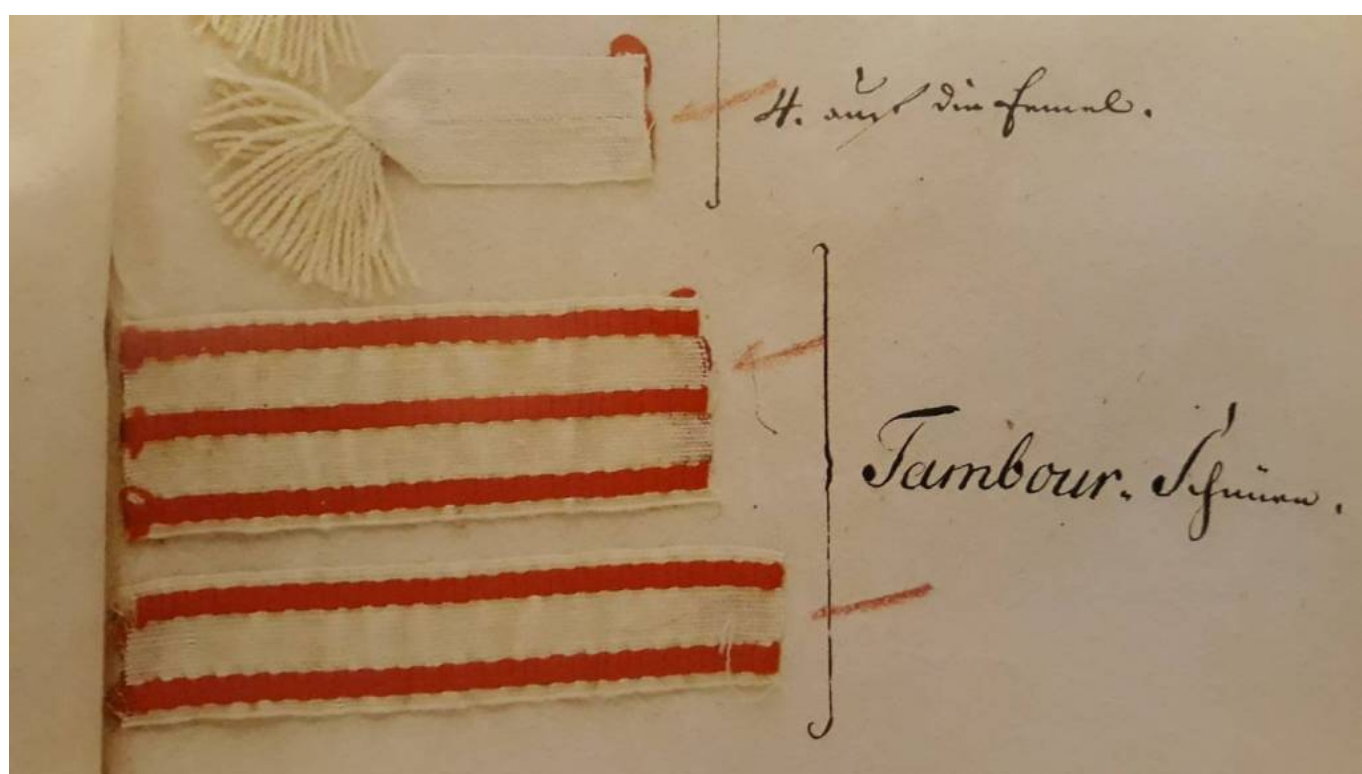 4. auf die Ermel.
Tambour. Schnüre.